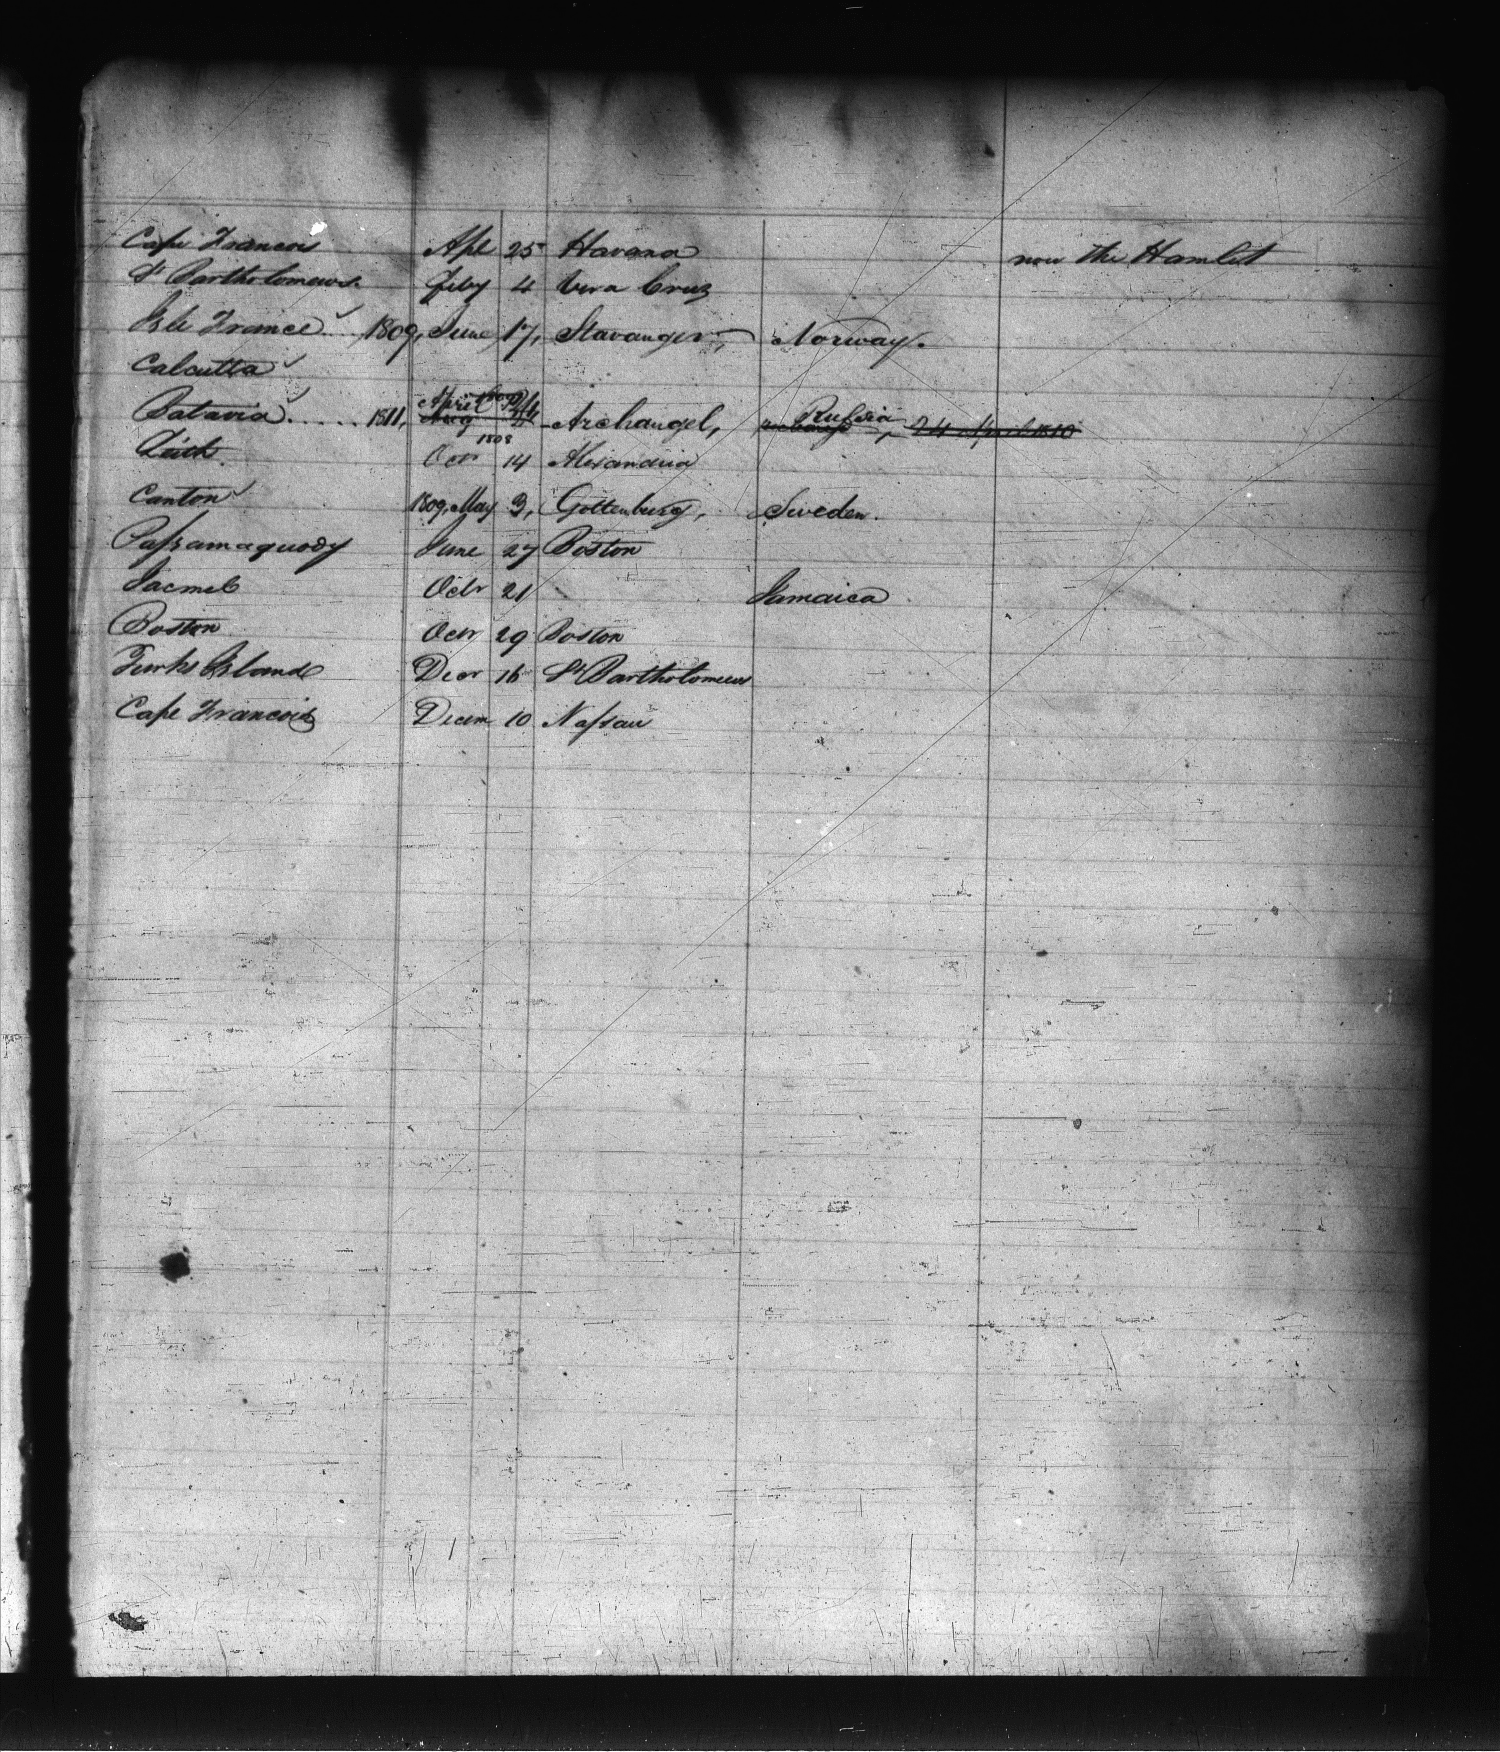 Cape Francois Apl 25 Havana now the Hamlet
St Bartholomews Feby 4 Vera Cruz
Isle France ... 1809, June 17, Stavanger, Norway.
Calcutta
Batavia ..... 1811, April 24, Archangel, Russia, 24 April 1810
Aug
1808
Leith Octr 14 Alexandria
Canton 1809, May 3, Gottenburg, Sweden.
Passamaquody June 27 Boston
Jacmel Octr 21 Jamaica
Boston Octr 29 Boston
Turks Island Decr 16 St Bartholomews
Cape Francois Decem 10 Nassau